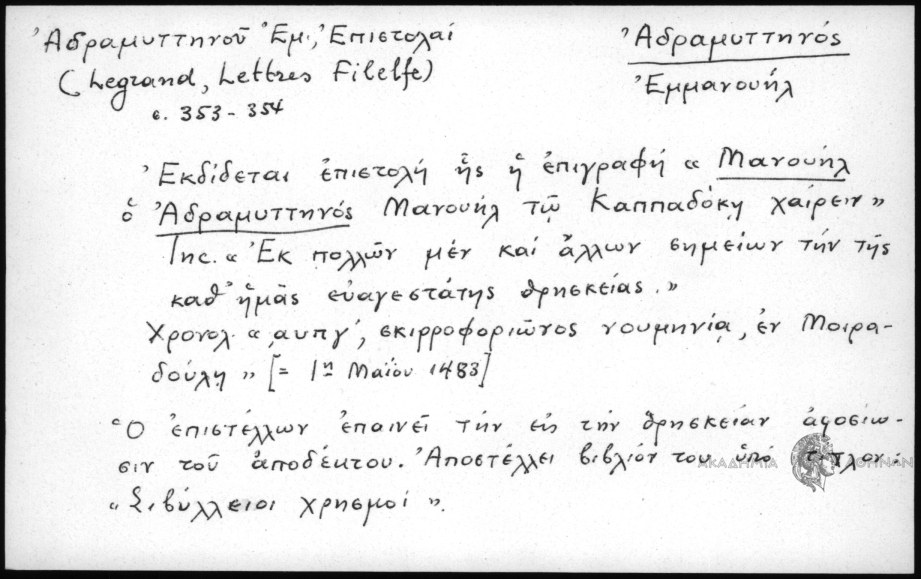 Ἀδραμυττηνοῦ Ἐμ., Ἐπιστολαί
(Legrand, Lettres Filelfe)
σ. 353 - 354
Ἀδραμυττηνός
Ἐμμανουήλ
Ἐκδίδεται ἐπιστολή ἧς ἡ ἐπιγραφή « Μανουήλ
ὁ Ἀδραμυττηνός Μανουήλ τῷ Καππαδόκῃ χαίρειν »
Inc. « Ἐκ πολλῶν μέν καί ἄλλων σημείων τήν τῆς
καθ᾽ ἡμᾶς εὐαγεστάτης θρησκείας. »
Χρονολ. « ͵αυπγ΄, σκιρροφοριῶνος νουμηνίᾳ, ἐν Μοιρα-
δούλῃ » [= 1η Μαΐου 1483]
Ὁ ἐπιστέλλων ἐπαινεῖ τήν εἰς τήν θρησκείαν ἀφοσίω-
σιν τοῦ ἀποδέκτου. Ἀποστέλλει βιβλίον του ὑπό τίτλον:
« Σιβύλλειοι χρησμοί ».
ΑΚΑΔΗΜΙΑ ΑΘΗΝΩΝ